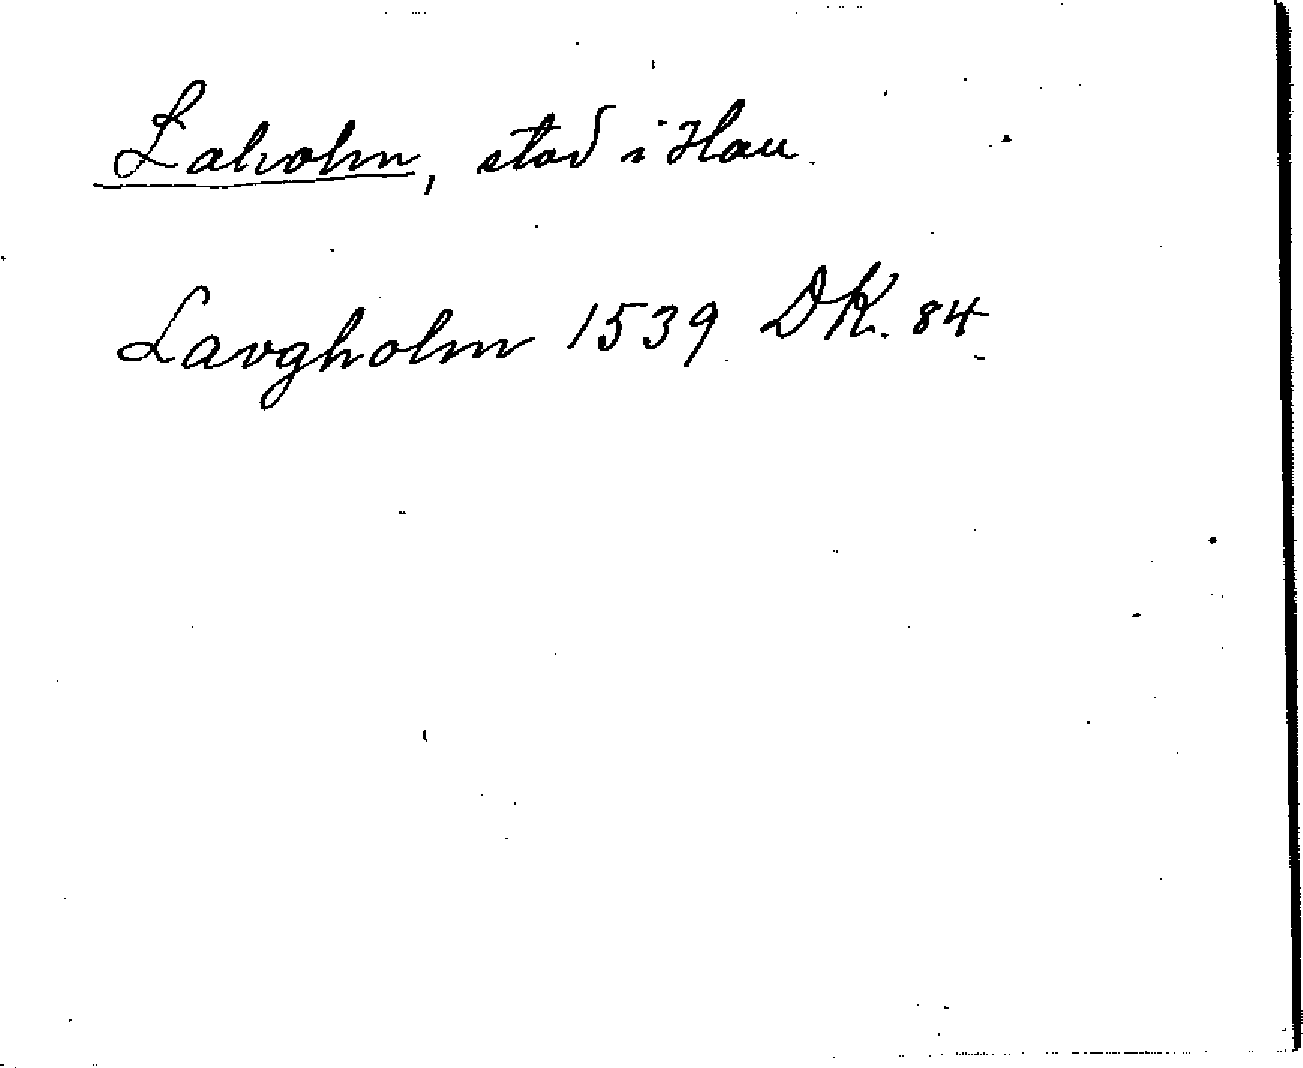 Laholm, stad i Hall.
Lavgholm 1539 DK. 84